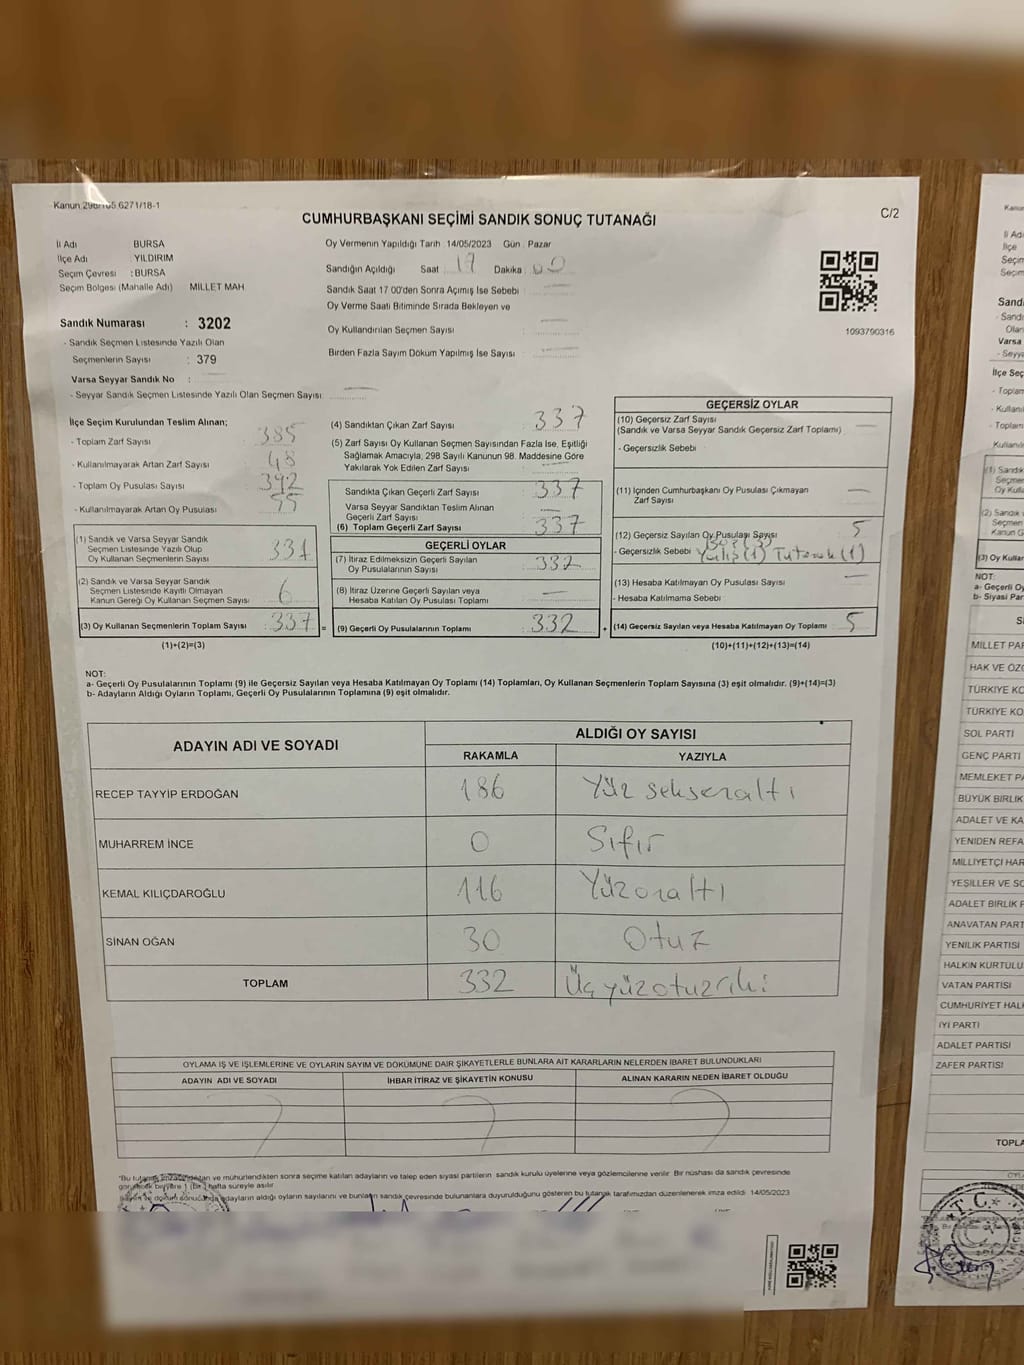 Kanun 298/105 6271/18-1
CUMHURBAŞKANI SEÇİMİ SANDIK SONUÇ TUTANAĞI
C/2
İl Adı BURSA
İlçe Adı : YILDIRIM
Seçim Çevresi : BURSA
Seçim Bölgesi (Mahalle Adı) MİLLET MAH
Sandık Numarası : 3202
- Sandık Seçmen Listesinde Yazılı Olan
Seçmenlerin Sayısı : 379
Varsa Seyyar Sandık No :
- Seyyar Sandık Seçmen Listesinde Yazılı Olan Seçmen Sayısı
Oy Vermenin Yapıldığı Tarih 14/05/2023 Gün : Pazar
Sandığın Açıldığı Saat 17 Dakika 00
Sandık Saat 17 00'den Sonra Açmış İse Sebebi
Oy Verme Saati Bitiminde Sırada Bekleyen ve
Oy Kullandırılan Seçmen Sayısı
Birden Fazla Sayım Döküm Yapılmış İse Sayısı
1093790316
İlçe Seçim Kurulundan Teslim Alınan;
- Toplam Zarf Sayısı : 385
- Kullanılmayarak Artan Zarf Sayısı : 48
- Toplam Oy Pusulası Sayısı : 392
- Kullanılmayarak Artan Oy Pusulası 55
(1) Sandık ve Varsa Seyyar Sandık
Seçmen Listesinde Yazılı Olup
Oy Kullanan Seçmenlerin Sayısı 331
(2) Sandık ve Varsa Seyyar Sandık
Seçmen Listesinde Kayıtlı Olmayan
Kanun Gereği Oy Kullanan Seçmen Sayısı 6
(3) Oy Kullanan Seçmenlerin Toplam Sayısı 337 =
(1)+(2)=(3)
(4) Sandıktan Çıkan Zarf Sayısı : 337
(5) Zarf Sayısı Oy Kullanan Seçmen Sayısından Fazla İse, Eşitliği
Sağlamak Amacıyla, 298 Sayılı Kanunun 98. Maddesine Göre
Yakılarak Yok Edilen Zarf Sayısı
Sandıkta Çıkan Geçerli Zarf Sayısı : 337
Varsa Seyyar Sandıktan Teslim Alınan
Geçerli Zarf Sayısı
(6) Toplam Geçerli Zarf Sayısı 337
GEÇERLİ OYLAR
(7) İtiraz Edilmeksizin Geçerli Sayılan
Oy Pusulalarının Sayısı : 332
(8) İtiraz Üzerine Geçerli Sayılan veya
Hesaba Katılan Oy Pusulası Toplamı
(9) Geçerli Oy Pusulalarının Toplamı : 332 +
GEÇERSİZ OYLAR
(10) Geçersiz Zarf Sayısı
(Sandık ve Varsa Seyyar Sandık Geçersiz Zarf Toplamı)
- Geçersizlik Sebebi
(11) İçinden Cumhurbaşkanı Oy Pusulası Çıkmayan
Zarf Sayısı
(12) Geçersiz Sayılan Oy Pusulası Sayısı 5
- Geçersizlik Sebebi
(13) Hesaba Katılmayan Oy Pusulası Sayısı
- Hesaba Katılmama Sebebi
(14) Geçersiz Sayılan veya Hesaba Katılmayan Oy Toplamı : 5
(10)+(11)+(12)+(13)=(14)
NOT:
a- Geçerli Oy Pusulalarının Toplamı (9) ile Geçersiz Sayılan veya Hesaba Katılmayan Oy Toplamı (14) Toplamları, Oy Kullanan Seçmenlerin Toplam Sayısına (3) eşit olmalıdır. (9)+(14)=(3)
b- Adayların Aldığı Oyların Toplamı, Geçerli Oy Pusulalarının Toplamına (9) eşit olmalıdır.
ADAYIN ADI VE SOYADI ALDIĞI OY SAYISI
RAKAMLA YAZIYLA
RECEP TAYYİP ERDOĞAN 186 Yüz seksenaltı
MUHARREM İNCE 0 Sıfır
KEMAL KILIÇDAROĞLU 116 Yüzonaltı
SİNAN OĞAN 30 Otuz
TOPLAM 332 Üçyüzotuziki
OYLAMA İŞ VE İŞLEMLERİNE VE OYLARIN SAYIM VE DÖKÜMÜNE DAİR ŞİKAYETLERLE BUNLARA AİT KARARLARIN NELERDEN İBARET BULUNDUKLARI
ADAYIN ADI VE SOYADI İHBAR İTİRAZ VE ŞİKAYETİN KONUSU ALINAN KARARIN NEDEN İBARET OLDUĞU
ve mühürlendikten sonra seçime katılan adayların ve talep eden siyasi partilerin sandık kurulu üyelerine veya gözlemcilerine verilir Bir nüshası da sandık çevresinde
hafta süreyle asılır
adayların aldığı oyların sayılarını ve bunların sandık çevresinde bulunanlara duyurulduğunu gösteren bu tutanak tarafımızdan düzenlenerek imza edildi 14/05/2023
MİLLET PAR
HAK VE ÖZG
TÜRKİYE KO
TÜRKİYE KO
SOL PARTİ
GENÇ PARTİ
MEMLEKET PA
BÜYÜK BİRLİK
ADALET VE KA
YENİDEN REFA
MİLLİYETÇİ HAR
YEŞİLLER VE SO
ADALET BİRLİK P
ANAVATAN PART
YENİLİK PARTİSİ
HALKIN KURTULU
VATAN PARTİSİ
CUMHURİYET HALK
İYİ PARTİ
ADALET PARTİSİ
ZAFER PARTİSİ
TOPLA
T.C.